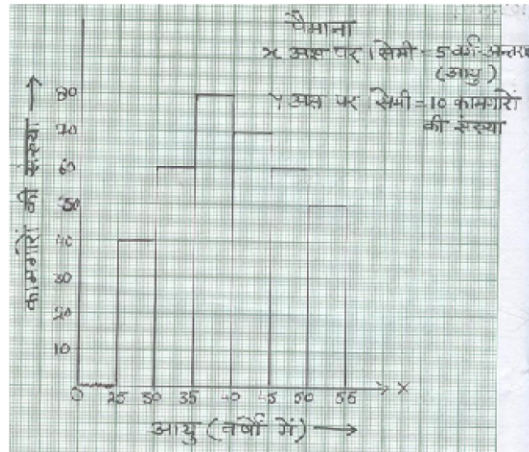 पैमाना
X अक्ष पर 1 सेमी = 5 वर्ग-अन्तराल
(आयु)
Y अक्ष पर 1 सेमी = 10 कामगारों
की संख्या
कामगारों की संख्या →
80
70
60
50
40
30
20
10
0 25 30 35 40 45 50 55 X
आयु (वर्षों में) →